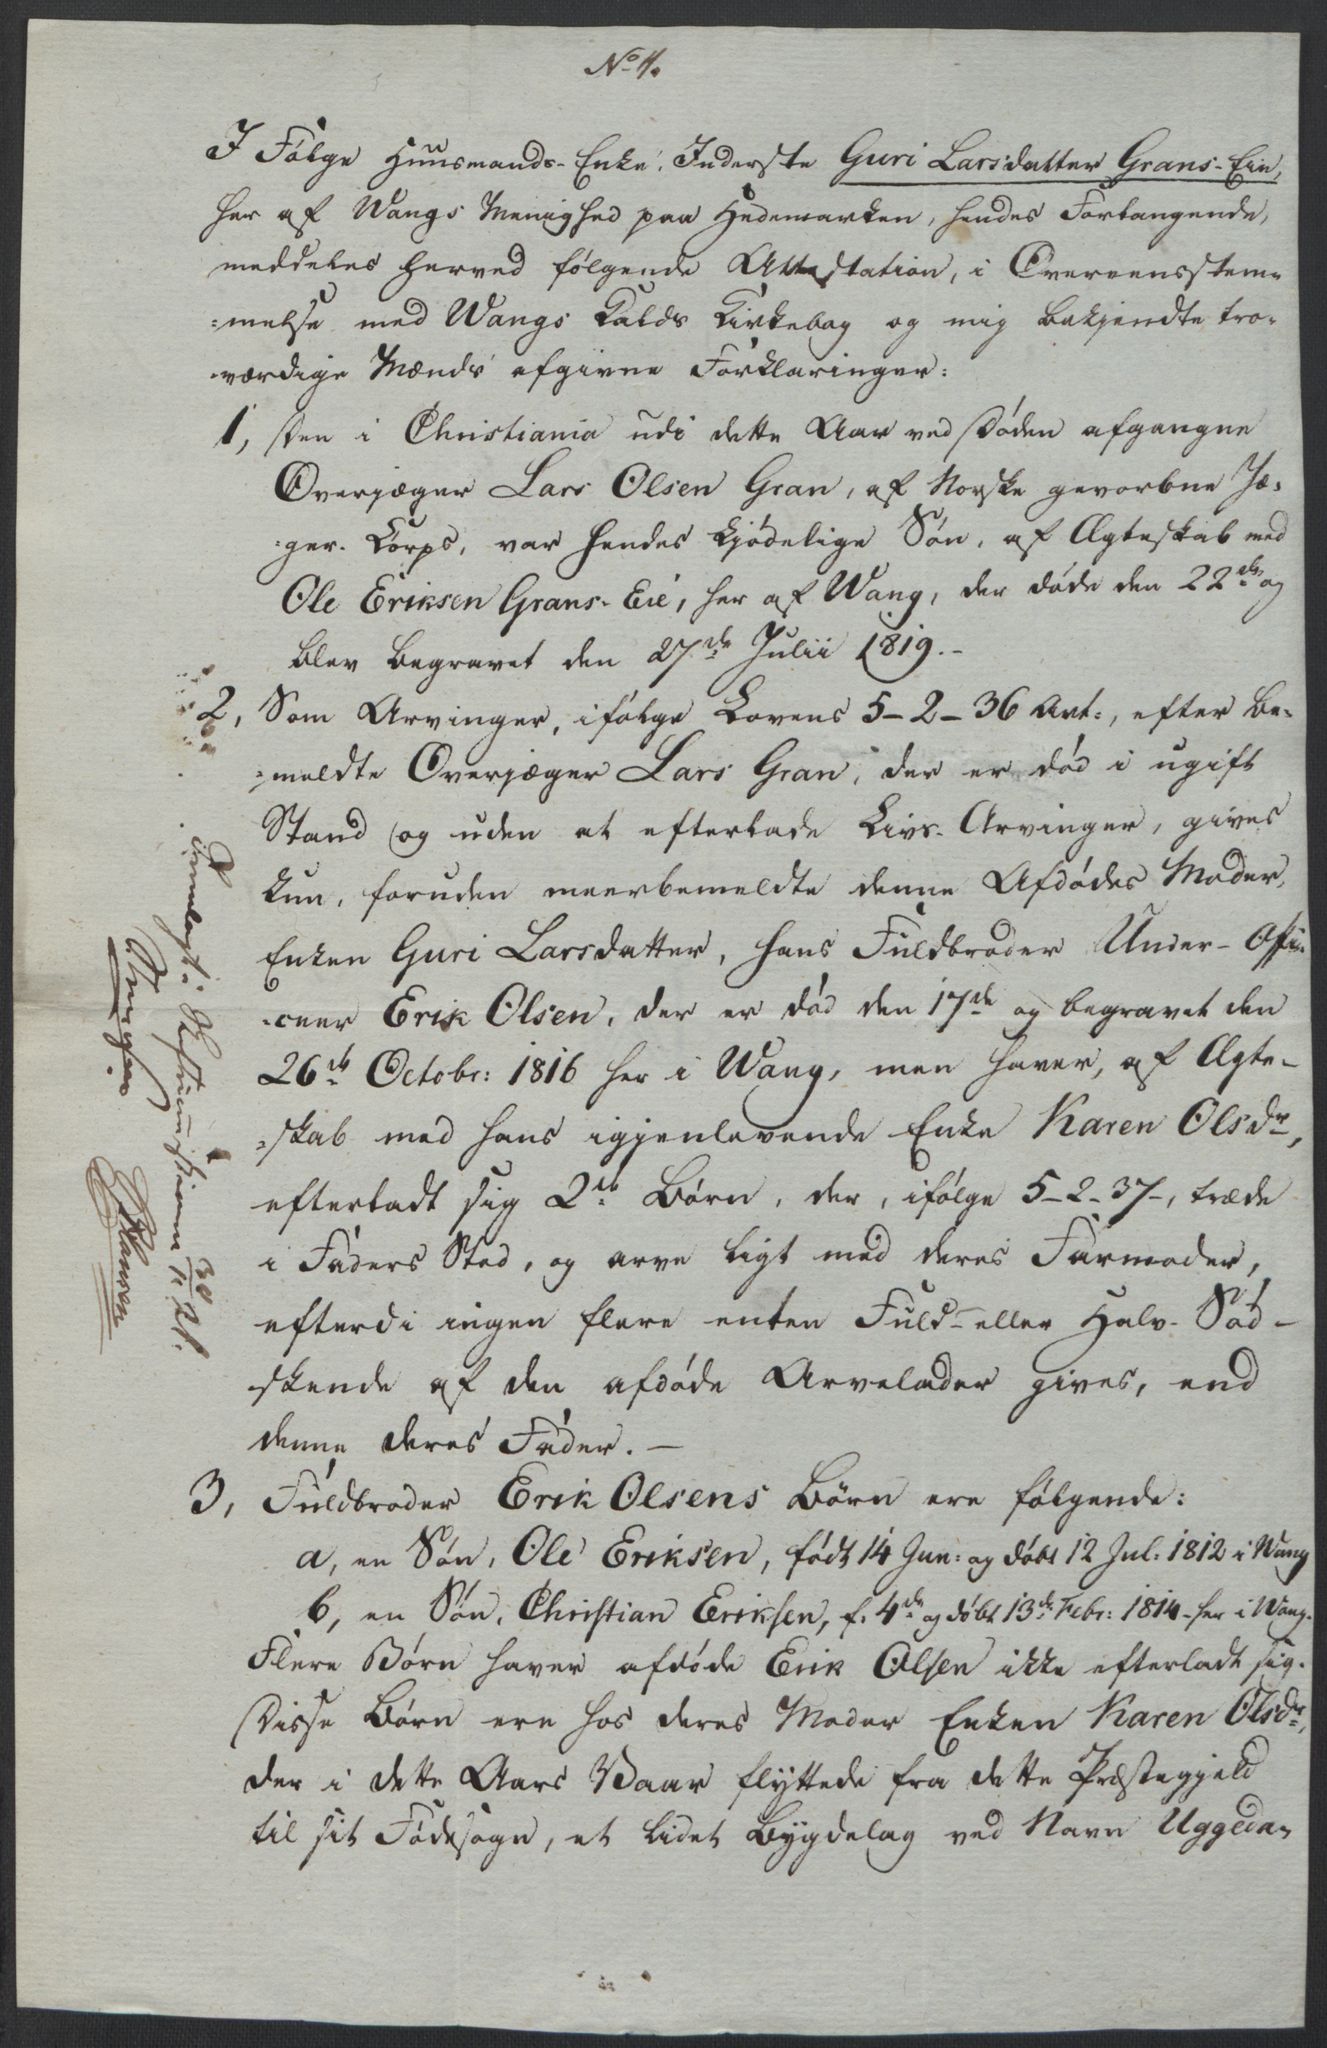 No 11.
I Følge Huusmands-Enke, Inderste Guri Larsdatter Grans-Eie,
her af Wangs Menighed paa Hedemarken, hendes Forlangende,
meddeles herved følgende Attestation, i Overeensstem-
=melse med Wangs Kalds Kirkebog og mig bekjendte tro-
værdige Mænds afgivne Forklaringer:
1, den i Christiania udi dette Aar ved Døden afgangne
Overjæger Lars Olsen Gran, af Norske gevorbne Jæ-
=ger-Corps, var hendes kjødelige Søn, af Ægteskab med
Ole Eriksen Grans-Eie, her af Wang, der døde den 22de og
blev begravet den 27de Julii 1819.-
2, Som Arvinger, ifølge Lovens 5-2-36 Art:, efter be-
=meldte Overjæger Lars Gran, der er død i ugift
Stand og uden at efterlade Livs-Arvinger, gives
kun, foruden meerbemeldte denne Afdødes Moder,
Enken Guri Larsdatter, hans Fuldbroder Under-Offi-
=ceer Erik Olsen, der er død den 17de og begravet den
26de Octobr: 1816 her i Wang, men haver, af Ægte-
=skab med hans igjenlevende Enke Karen Olsdr,
efterladt sig 2de Børn, der, ifølge 5-2-37-, træde
i Faders Sted, og arve ligt med deres Farmoder,
efterdi ingen flere enten Fuld- eller Halv-Sød-
skende af den afdøde Arvelader gives, end
denne deres Fader.-
3, Fuldbroder Erik Olsens Børn ere følgende:
a, en Søn, Ole Eriksen, født 14 Jun: og døbt 12 Jul: 1812 i Wang
b, en Søn, Christian Eriksen, f. 4de og døbt 13de Febr: 1814 her i Wang.
Flere Børn haver afdøde Erik Olsen ikke efterladt sig.
Disse Børn ere hos deres Moder Enken Karen Olsdr,
der i dette Aars Vaar flyttede fra dette Præstegjeld
til sit Fødesogn, et lidet Bygdelag ved Navn Uggeda-
Fremlagt i Skifte
30/11 21.
Hansen